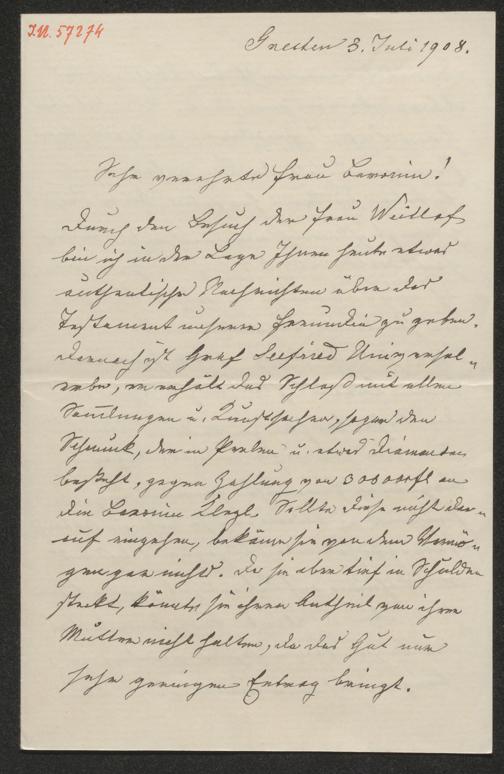 I.N. 57274
Gresten 3. Juli 1908.
Sehr verehrte Frau Baronin!
Durch den Besuch der Frau Weitlof
bin ich in der Lage Ihnen heute etwas
authentische Nachrichten über das
Testament unserer Freundin zu geben.
Darnach ist Graf Seefried Universal-
erbe, er erhält das Schloß mit allen
Sammlungen u. Kunstsachen, sogar den
Schmuck, der in Perlen u. etwas Diamanten
besteht, gegen Zahlung von 30000 fl an
die Baronin Klezl. Sollte diese nicht dar-
auf eingehen, bekäme sie von dem Vermö-
gen gar nichts. Da sie aber tief in Schulden
steckt, könnte sie ihren Antheil von ihrer
Mutter nicht halten, da das Gut nur
sehr geringen Ertrag bringt.